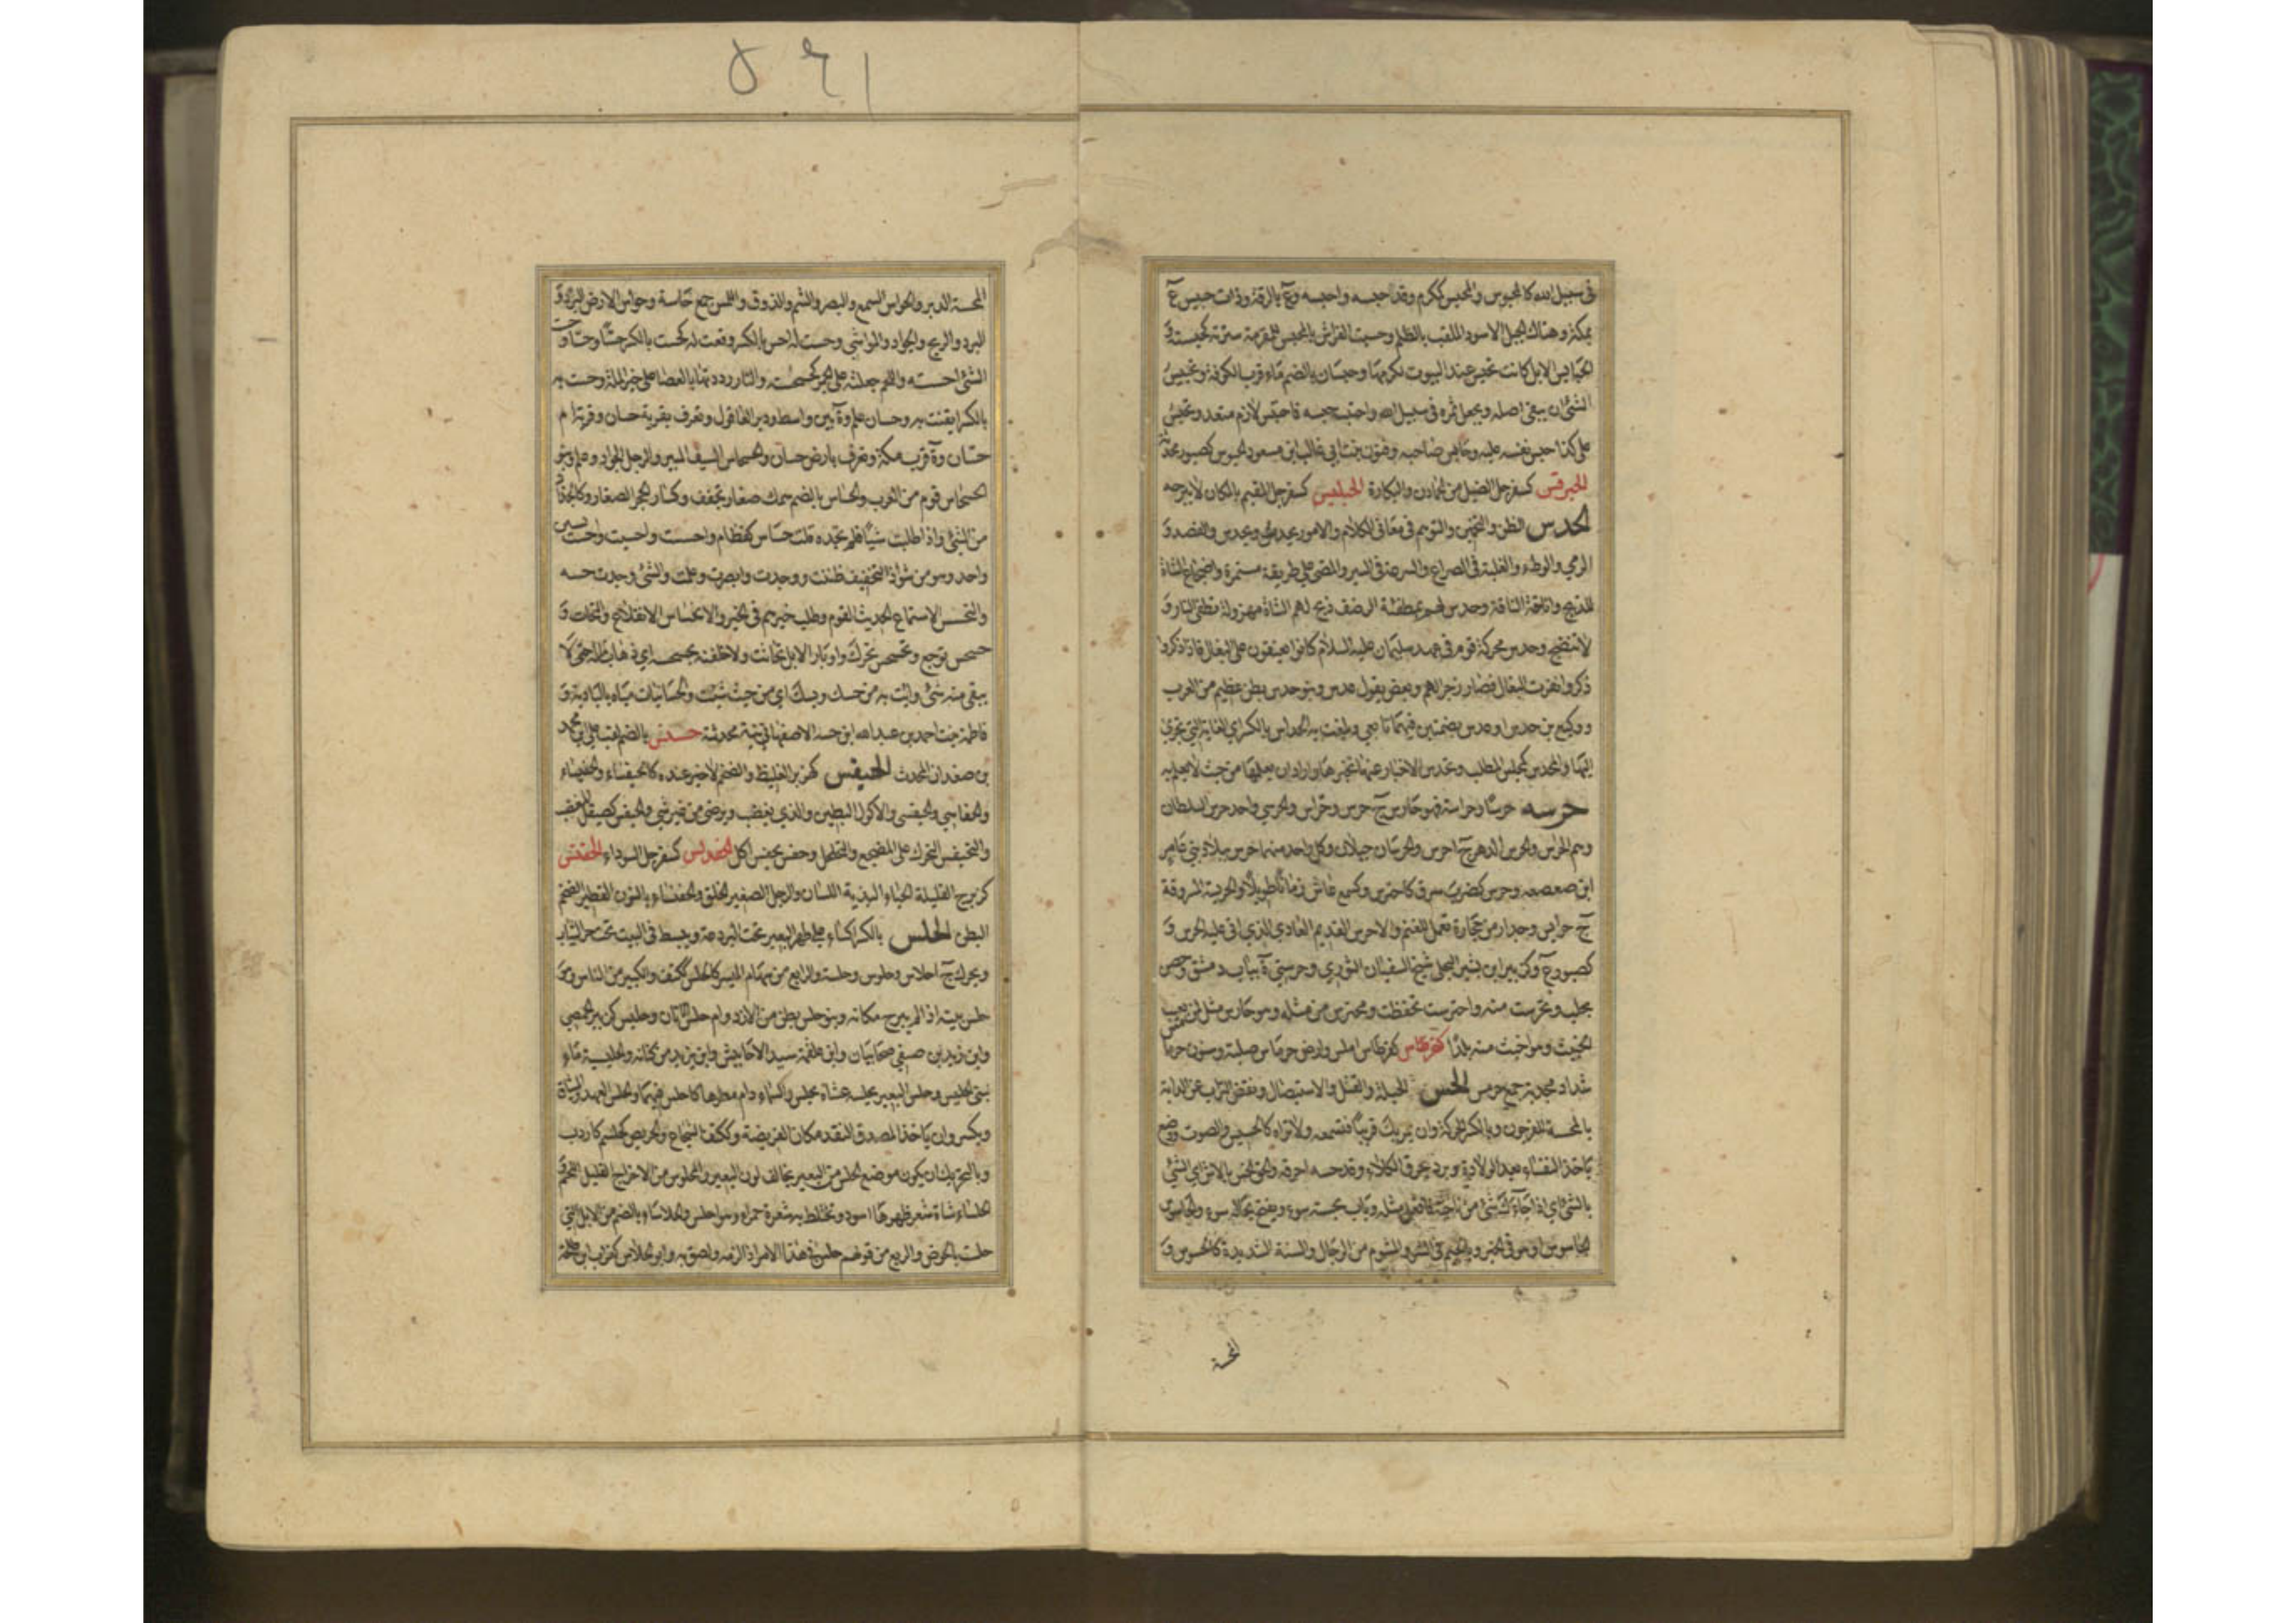 في سبيل الله كالمحبوس والمحبس كمكرم وقد حبسه واحبسه وع بالرقة وذات حبيس ع
بمكة وهناك الجبل الاسود الملقب بالظلم وحبست الفراش بالمحبس للمقرمة سترته كحبسته و
الحبايس الابل كانت تحبس عند البيوت لكرمها وحبسان بالضم ماء قرب الكوفة وتحبيس
الشئ ان يبقى اصله ويجعل ثمره في سبيل الله واحتبسه حبسه فاحتبس لازم متعد وتحبس
على كذا حبس نفسه عليه وحابس صاحبه وفنون بنت ابي غالب ابن مسعود الحبوس كصبور محدثة
الحبرقس كسفرجل الضئيل من الحملان والبكارة الحبلبس كسفرجل المقيم بالمكان لا يبرحه
الحدس الظن والتخمين والتوهم في معاني الكلام والامور يحدس ويحدس والقصد و
الرمي والوطء والغلبة في الصراع والسرعة في السير والمضي على طريقة مستمرة واضجاع الشاة
للذبح واناخة الناقة وحدس لهم بمطفئة الرضف ذبح لهم الشاة مهزولة تطفئ النار و
لا تنضج وحدس محركة قوم في عهد سليمان عليه السلام كانوا يعنفون على البغال فاذا ذكروا
ذكروا نفرت البغال فصار زجرا لهم وبعض يقول عدس وبنو حدس بطن عظيم من العرب
ووكيع بن حدس او عدس بضمتين فيهما تابعي وبلغت به الحداس بالكسر اي الغاية التي تجري
اليها والمحدس كمجلس المطلب وتحدس الاخبار عنها تخبرها واراد ان يعلمها من حيث لا يعلم به
حرسه حرسا وحراسة فهو حارس ج حرس وحراس والحرسي واحد حرس السلطان
وهم الحراس والحرس الدهر ج احرس والحرسان جبلان وكل واحد منهما حرس ببلاد بني عامر
ابن صعصعه وحرس كضرب سرق كاحترس وكسمع عاش زمانا طويلا والحريسة المسروقة
ج حرايس وجدار من حجارة تعمل للغنم والاحرس القديم العادي الذي اتى عليه الحرس و
كصبور ع وكزبير ابن بشير البجلي شيخ لسفيان الثوري وحرستى ة بباب دمشق وحصن
بحلب وتحرست منه واحترست تحفظت ومحترس من مثله وهو حارس مثل لمن يعيب
الخبيث وهو اخبث منه بلد كقرطاس املس وارض حرماس صلبة وسنون حرمس
شداد مجدبة جمع حرمس الحس الحيلة والقتل والاستيصال ونفض التراب عن الدابة
بالمحسة للفرجون وبالكسر الحركة وان يمر بك قريبا فتسمعه ولا تراه كالحسيس والصوت ووجع
ياخذ النفساء بعد الولادة وبرد يحرق الكلاء وقد حسه احرقه والحق الحس بالاس اي الشئ
بالشئ اي اذا جاءك شئ من ناحية فافعل مثله وبات بحسة سوء ويفتح بحالة سوء والحاسوس
الجاسوس او هو في الخير وبالجيم في الشر والمشوم من الرجال والسنة الشديدة كالحسوس و
المحسة
٥٤١
المحسة الدبر والحواس السمع والبصر والشم والذوق واللمس جمع حاسة وحواس الارض البرد و
البرد والريح والجراد والمواشي وحسست له احس بالكسر رققت له كحسست بالكسر حسا وحسا وحسست
الشئ احسسته واللحم جعلته على الجمر كحسحسته والنار رددتها بالعصا على خبز الملة وحسست به
بالكسر ايقنت به وحسان علم وة بين واسط ودير العاقول وتعرف بقرية حسان وقرية ام
حسان وة قرب مكة وتعرف بارض حسان والحسحاس السيف المبير والرجل الجواد وعلم وبنو
الحسحاس قوم من العرب والحساس بالضم سمك صغار يجفف وكسار الحجر الصغار وكالجذاذ
من الشئ واذا طلبت شيئا فلم تجده قلت حساس كقطام واحسست واحسيت واحست بسين
واحد وهو من شواذ التخفيف ظننت ووجدت وابصرت وعلمت والشئ وجدت حسه
والتحسس الاستماع لحديث القوم وطلب خبرهم في الخير والانحساس الانقلاع والتحات و
حسحس توجع وتحسحس تحرك واوبار الابل تحاتت ولاخلفنه بحسحسه اي ذهاب ماله حتى لا
يبقى منه شئ وايت به من حسك وبسك اي من حيث شيت والحسانيات مياه بالبادية و
فاطمة بنت احمد بن عبد الله ابن حسة الاصفهاني تبنية محدثة حسنس بالضم لقب علي بن محمد
بن صفدان المحدث الحيفس كهزبر الغليظ والضخم لا خير عنده كالحيفساء والحفيساء
والحفاسي والحيفسي والاكول البطين والذي يغضب ويرضى من غير شئ والحيفس كصيقل المغضب
والتحيفس التحرك على المضجع والتحلحل وحفس يحفس اكل الحفدلس كسفرجل السوداء الحفنس
كزبرج القليلة الحياء البذية اللسان والرجل الصغير الخلق والحفنساء بالنون القصير الضخم
البطن الحلس بالكسر كساء على ظهر البعير تحت البردعة ويبسط في البيت تحت حر الثياب
ويحرك ج احلاس وحلوس وحلسة والرابع من سهام الميسر كالحلس ككتف والكبير من الناس وهو
حلس بيته اذا لم يبرح مكانه وبنو حلس بطن من الازد وام حلس الاتان وحليس كزبير حمصي
وابن زيد بن صفي صحابيان وابن علقمة سيد الاحابيش وابن يزيد من كنانة والحليسية ماء
لبني الحليس وحلس البعير يحلسه غشاه بحلس والسماء دام مطرها كاحلس فيهما والحلس العهد والميثاق
ويكسر وان ياخذ المصدق النقد مكان الفريضة وككتف الشجاع والحريص كحلسم كاردب
وبالتحريك ان يكون موضع الحلس من البعير يخالف لون البعير والمحلوس من الاحراح القليل اللحم و
الحلساء شاة شعر ظهرها اسود وتختلط به شعرة حمراء وهو احلس والحلاساء بالضم من الابل التي
حلست بالحوض والربع من قولهم حلس في هذا الامر اذا لزمه ولصق به وابو الحلاس كغراب ابن طلحة